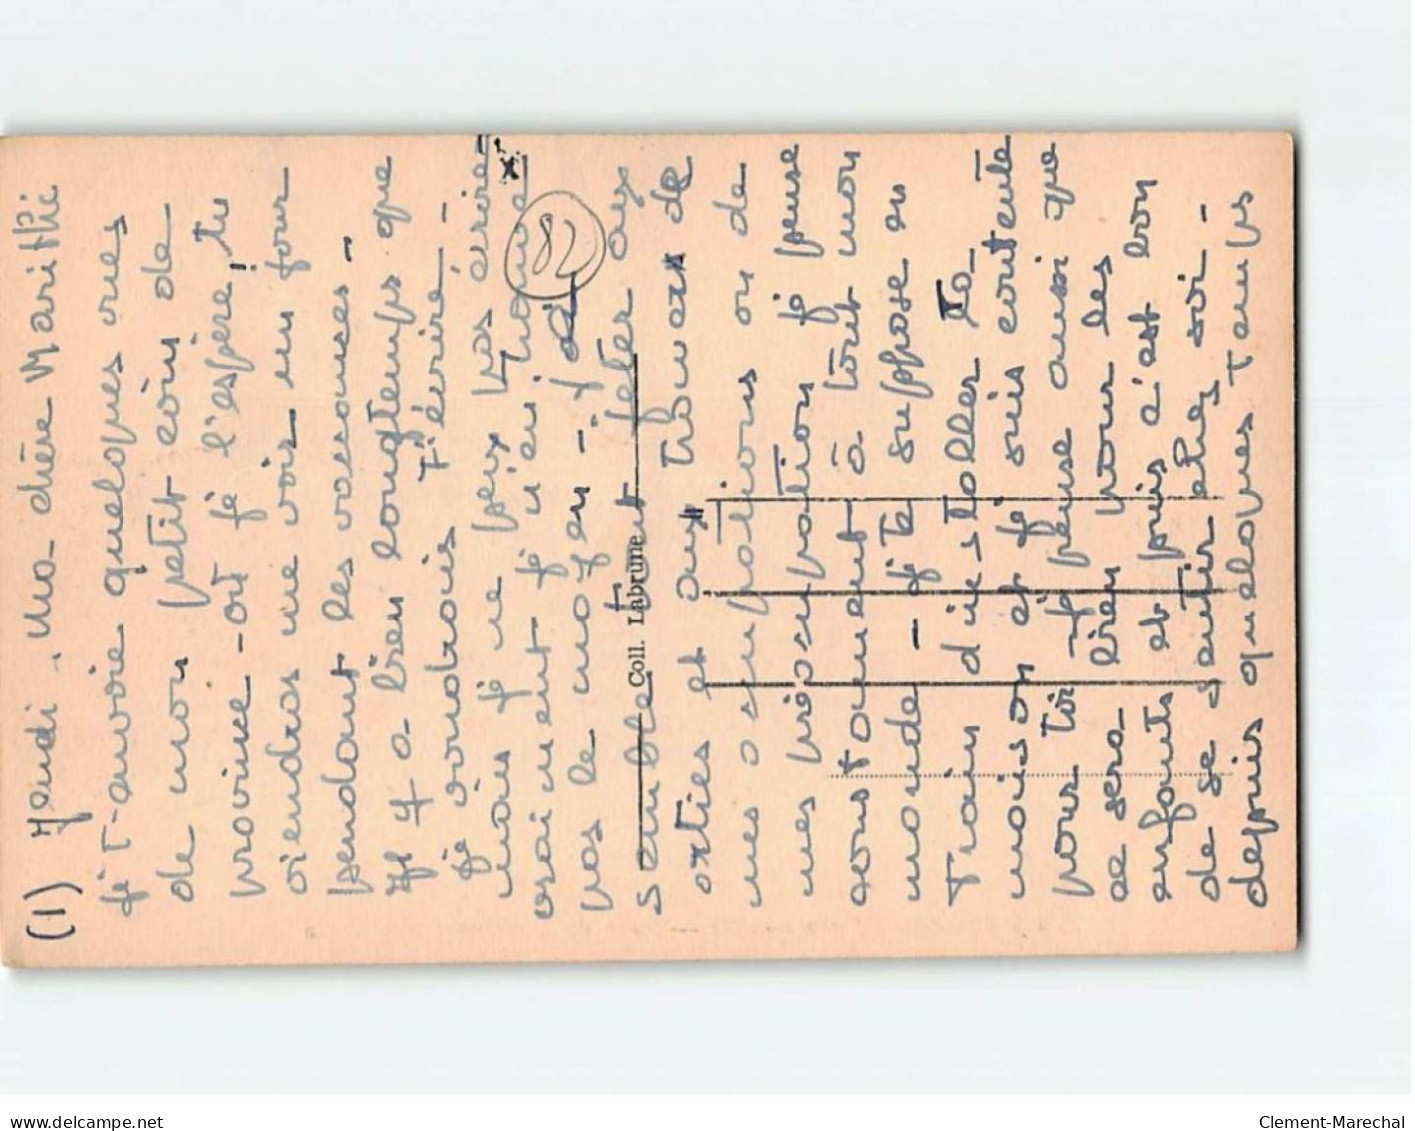 (1) Jeudi. Ma chère Marithé
je t'envoie quelques vues
de mon petit coin de
province - où je l'espère, tu
viendras me voir un jour
pendant les vacances -
Il y a bien longtemps que
je voudrais t'écrire -
mais je ne peux pas écrire
vraiment je n'en trouve
pas le moyen - y a
82
semble tout jeter aux
Coll. Labrune
orties et aux
trousses de
mes occupations ou de
mes préoccupation je pense
constamment à tout mon
monde - je te suppose en
train d'installer la
maison et je suis contente
pour toi - je pense aussi que
ce sera bien pour les
enfants et puis c'est bon
de se sentir chez soi -
depuis quelques temps
delcampe.net
Clement-Marechal